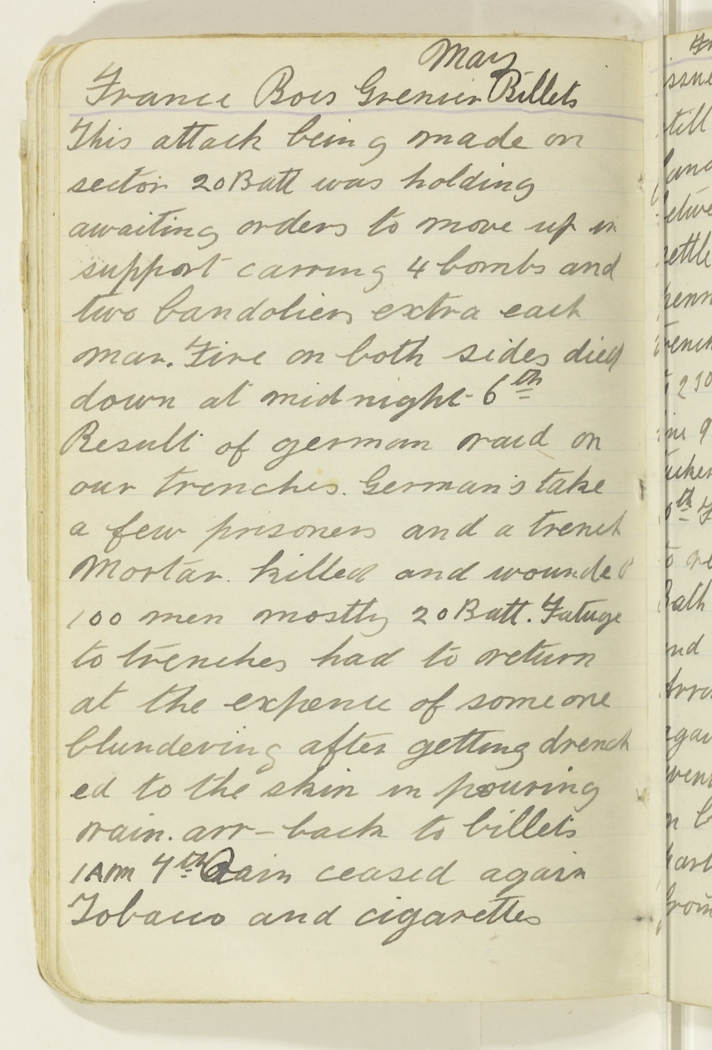 May
France Bois Grenier Billets
This attack being made on
sector 20 Batt was holding
awaiting orders to move up in
support carring 4 bombs and
two bandoliers extra each
man. Fire on both sides died
down at midnight - 6th
Result of german raid on
our trenches. German's take
a few prisoners and a trench
Mortar. killed and wounded
100 men mostly 20 Batt. Fatuge
to trenches had to return
at the expence of someone
blundering after getting drench
ed to the skin in pouring
rain. arr - back to billets
1 AM 7th Rain ceased again
Tobacco and cigarettes